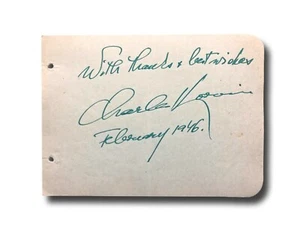 With thanks & best wishes
Charles Korvin
February 1946.